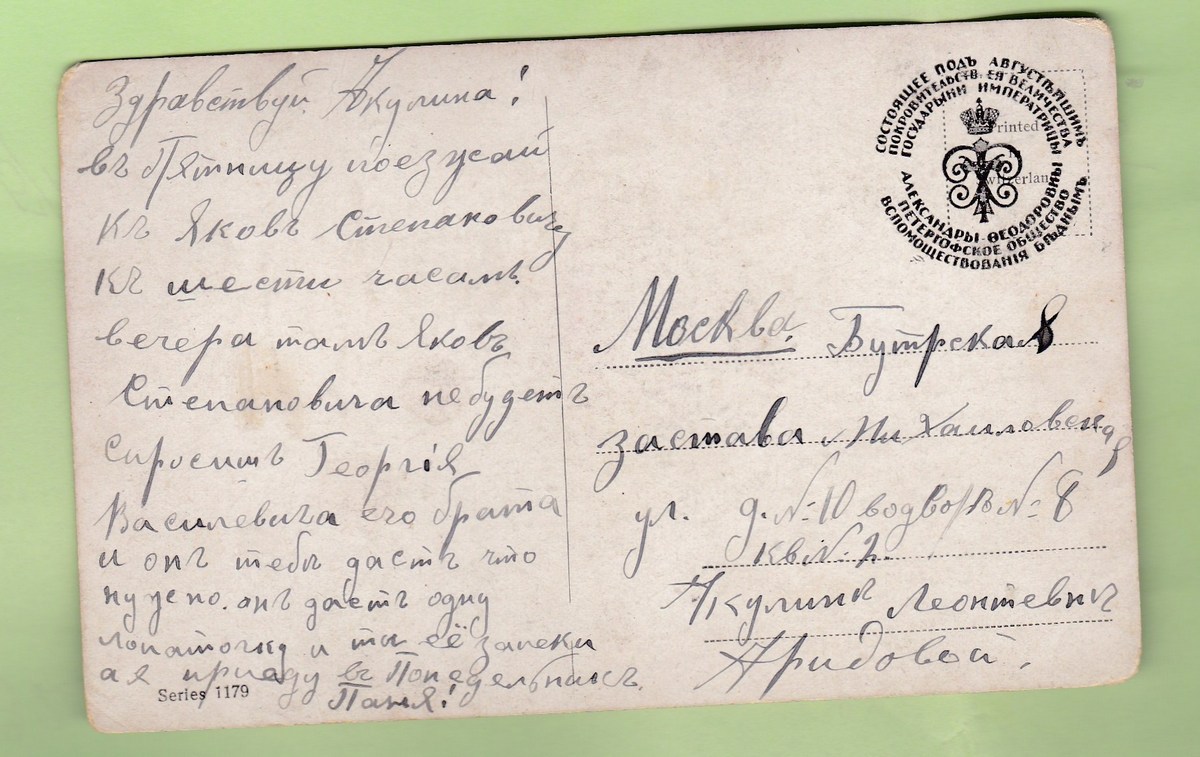 Здравствуй Акулина!
въ Пятницу поезжай
Къ Яковъ Степановичу
Къ шести часамъ
вечера тамъ Яковъ
Степановича небудетъ
Спросишь Георгія
Василевича его брата
и онъ тебѣ дастъ что
нужно. онъ дастъ одну
лопаточку и ты её запеки
а я приеду въ Понедельникъ.
Паня!
Series 1179
СОСТОЯЩЕЕ ПОДЪ АВГУСТѢЙШИМЪ
ПОКРОВИТЕЛЬСТВ. ЕЯ ВЕЛИЧЕСТВА
ГОСУДАРЫНИ ИМПЕРАТРИЦЫ
АЛЕКСАНДРЫ ѲЕОДОРОВНЫ
ПЕТЕРГОФСКОЕ ОБЩЕСТВО
ВСПОМОЩЕСТВОВАНІЯ БѢДНЫМЪ
Printed
in
Switzerland
Москва. Бутрская
застава Михаиловская
ул. д. №10 водворѣ №8
кв №2.
Акулинѣ Леонтевнѣ
Аридовой.